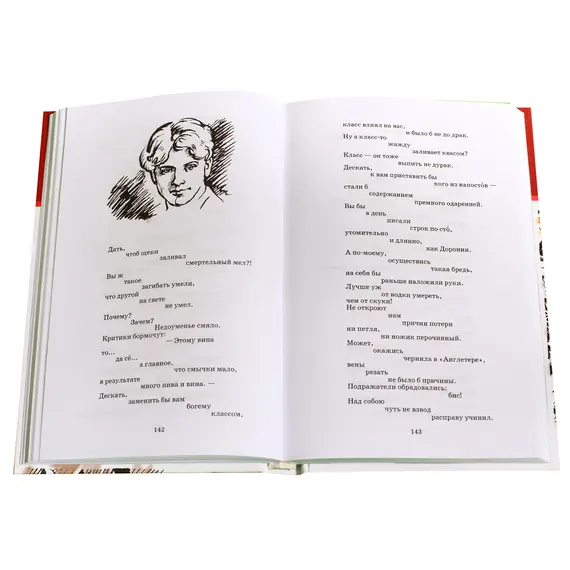 Дать,
чтоб щеки
заливал
смертельный мел?!
Вы ж
такое
загибать умели,
что другой
на свете
не умел.
Почему?
Зачем?
Недоуменье смяло.
Критики бормочут:
— Этому вина
то...
да сё...
а главное,
что смычки мало,
в результате
много пива и вина. —
Дескать,
заменить бы вам
богему
классом,
142
класс влиял на вас,
и было б не до драк.
Ну а класс-то
жажду
заливает квасом?
Класс — он тоже
выпить не дурак.
Дескать,
к вам приставить бы
кого из напосто́в —
стали б
содержанием
премного одаренней.
Вы бы
в день
писали
строк по сто́,
утомительно
и длинно,
как Доронин.
А по-моему,
осуществись
такая бредь,
на себя бы
раньше наложили руки.
Лучше уж
от водки умереть,
чем от скуки!
Не откроют
нам
причин потери
ни петля,
ни ножик перочинный.
Может,
окажись
чернила в «Англетере»,
вены
резать
не было б причины.
Подражатели обрадовались:
бис!
Над собою
чуть не взвод
расправу учинил.
143